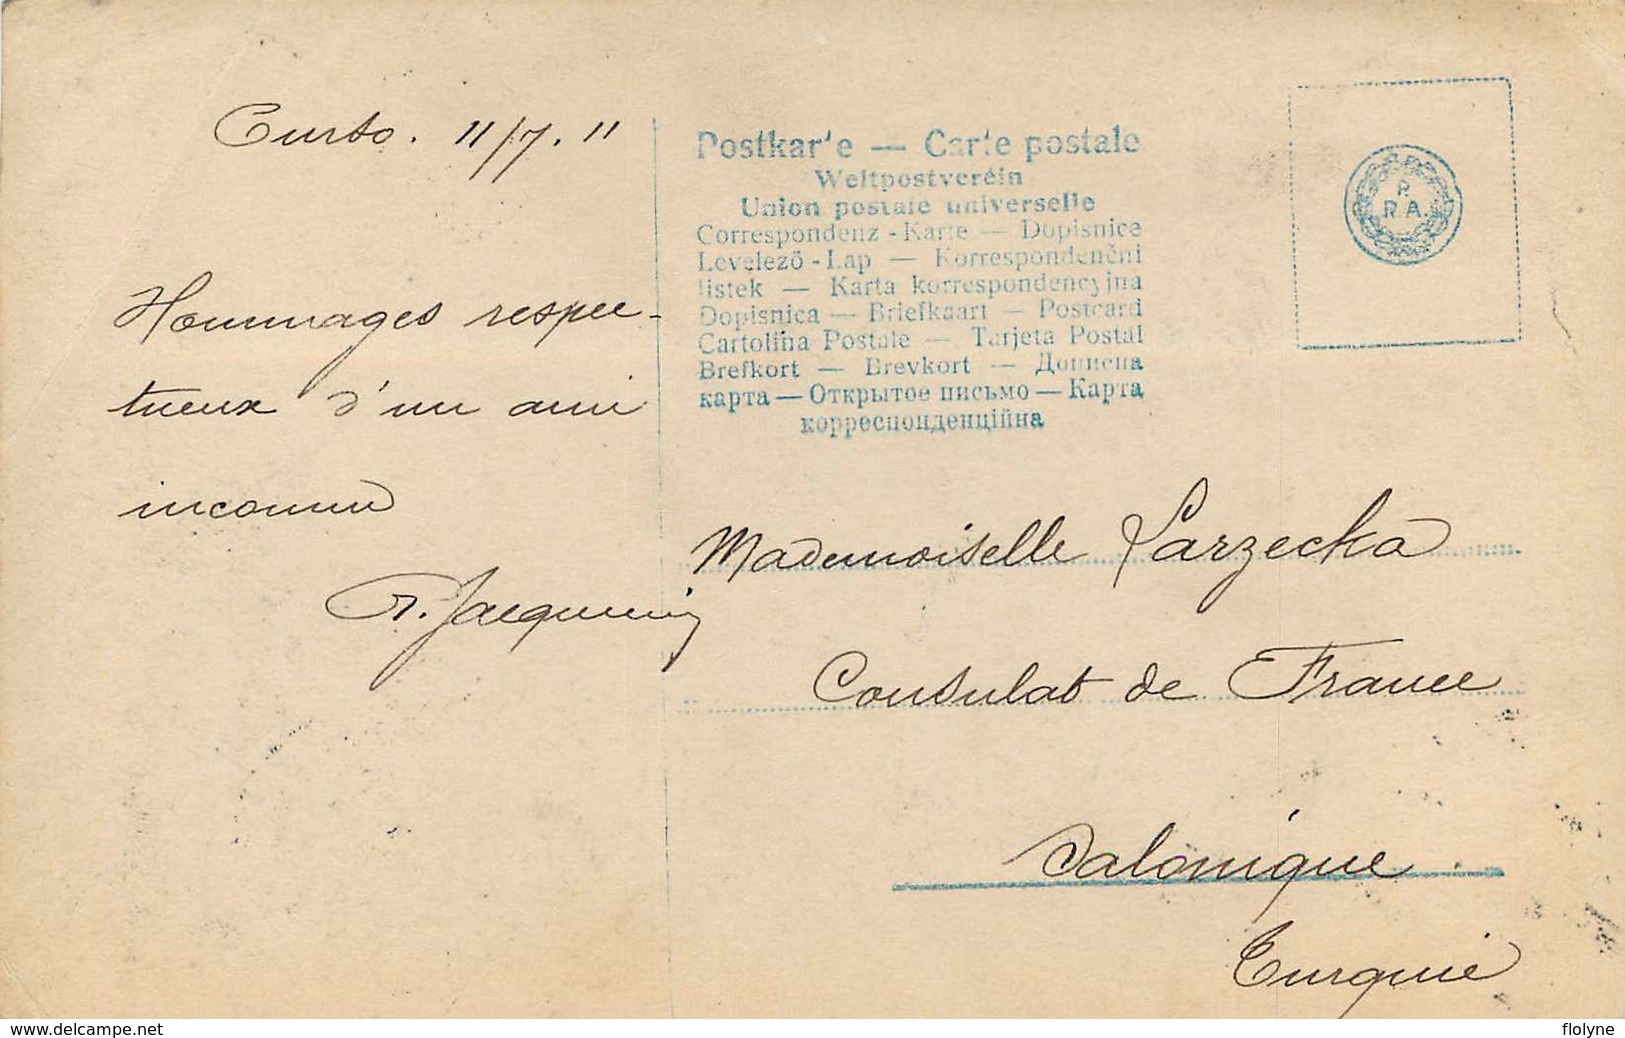 Curto. 11/7.11
Hommages respec-
tueux d'un ami
inconnu
Jacquemin
Postkarte — Carte postale
Weltpostverein
Union postale universelle
Correspondenz-Karte — Dopisnice
Levelező-Lap — Korrespondenční
listek — Karta korrespondencyjna
Dopisnica — Briefkaart — Postcard
Cartolina Postale — Tarjeta Postal
Brefkort — Brevkort — Дописна
карта — Открытое письмо — Карта
корреспонденційна
P.
R A.
Mademoiselle Larzecka
Consulat de France
Salonique
Turquie
www.delcampe.net
flolyne